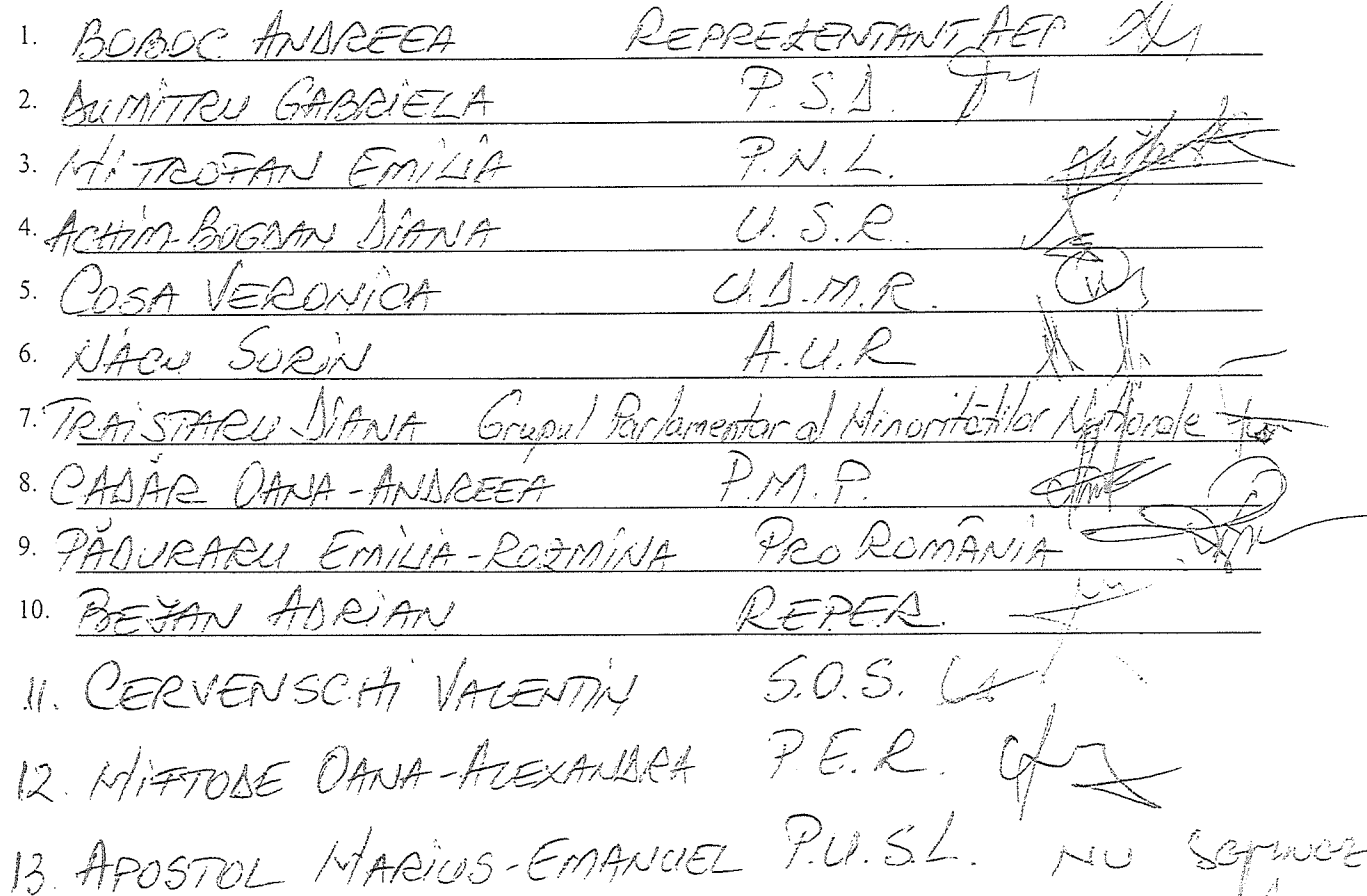 1. BOBOC ANDREEA REPREZENTANT AEP
2. DUMITRU GABRIELA P.S.D.
3. MITROFAN EMILIA P.N.L.
4. ACHIM-BOGDAN DIANA U.S.R.
5. COSA VERONICA U.D.M.R.
6. NACU SORIN A.U.R
7. TRAISTARU DIANA Grupul Parlamentar al Minorităților Naționale
8. CADĂR OANA-ANDREEA P.M.P.
9. PĂDURARU EMILIA-ROZMINA PRO ROMÂNIA
10. BEJAN ADRIAN REPER
11. CERVENSCHI VALENTIN S.O.S.
12. MIFTODE OANA-ALEXANDRA P.E.R.
13. APOSTOL MARIUS-EMANUEL P.U.S.L. NU